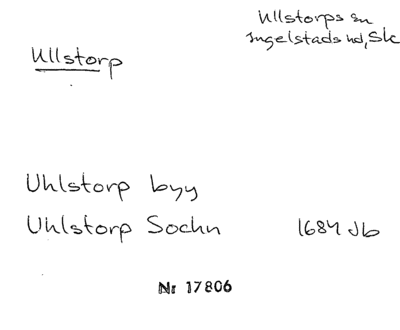 Ullstorps sn
Ingelstads hd, Sk
Ullstorp
Uhlstorp byy
Uhlstorp Sochn 1684 Jb
Nr 17806